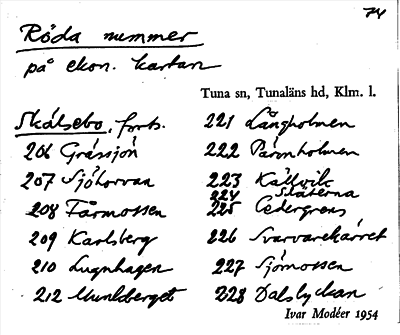 74
Röda nummer
på ekon. kartan
Tuna sn, Tunaläns hd, Klm. l.
Skälsebo, forts.
206 Gråssjön
207 Sjöhorvan
208 Fårmossen
209 Karlsberg
210 Lugnhagen
212 Munkberget
221 Långholmen
222 Påronholmen
223 Källvik
224 Slåterna
225 Cedergrens
226 Svarvarekärret
227 Sjömossen
228 Dalslyckan
Ivar Modéer 1954